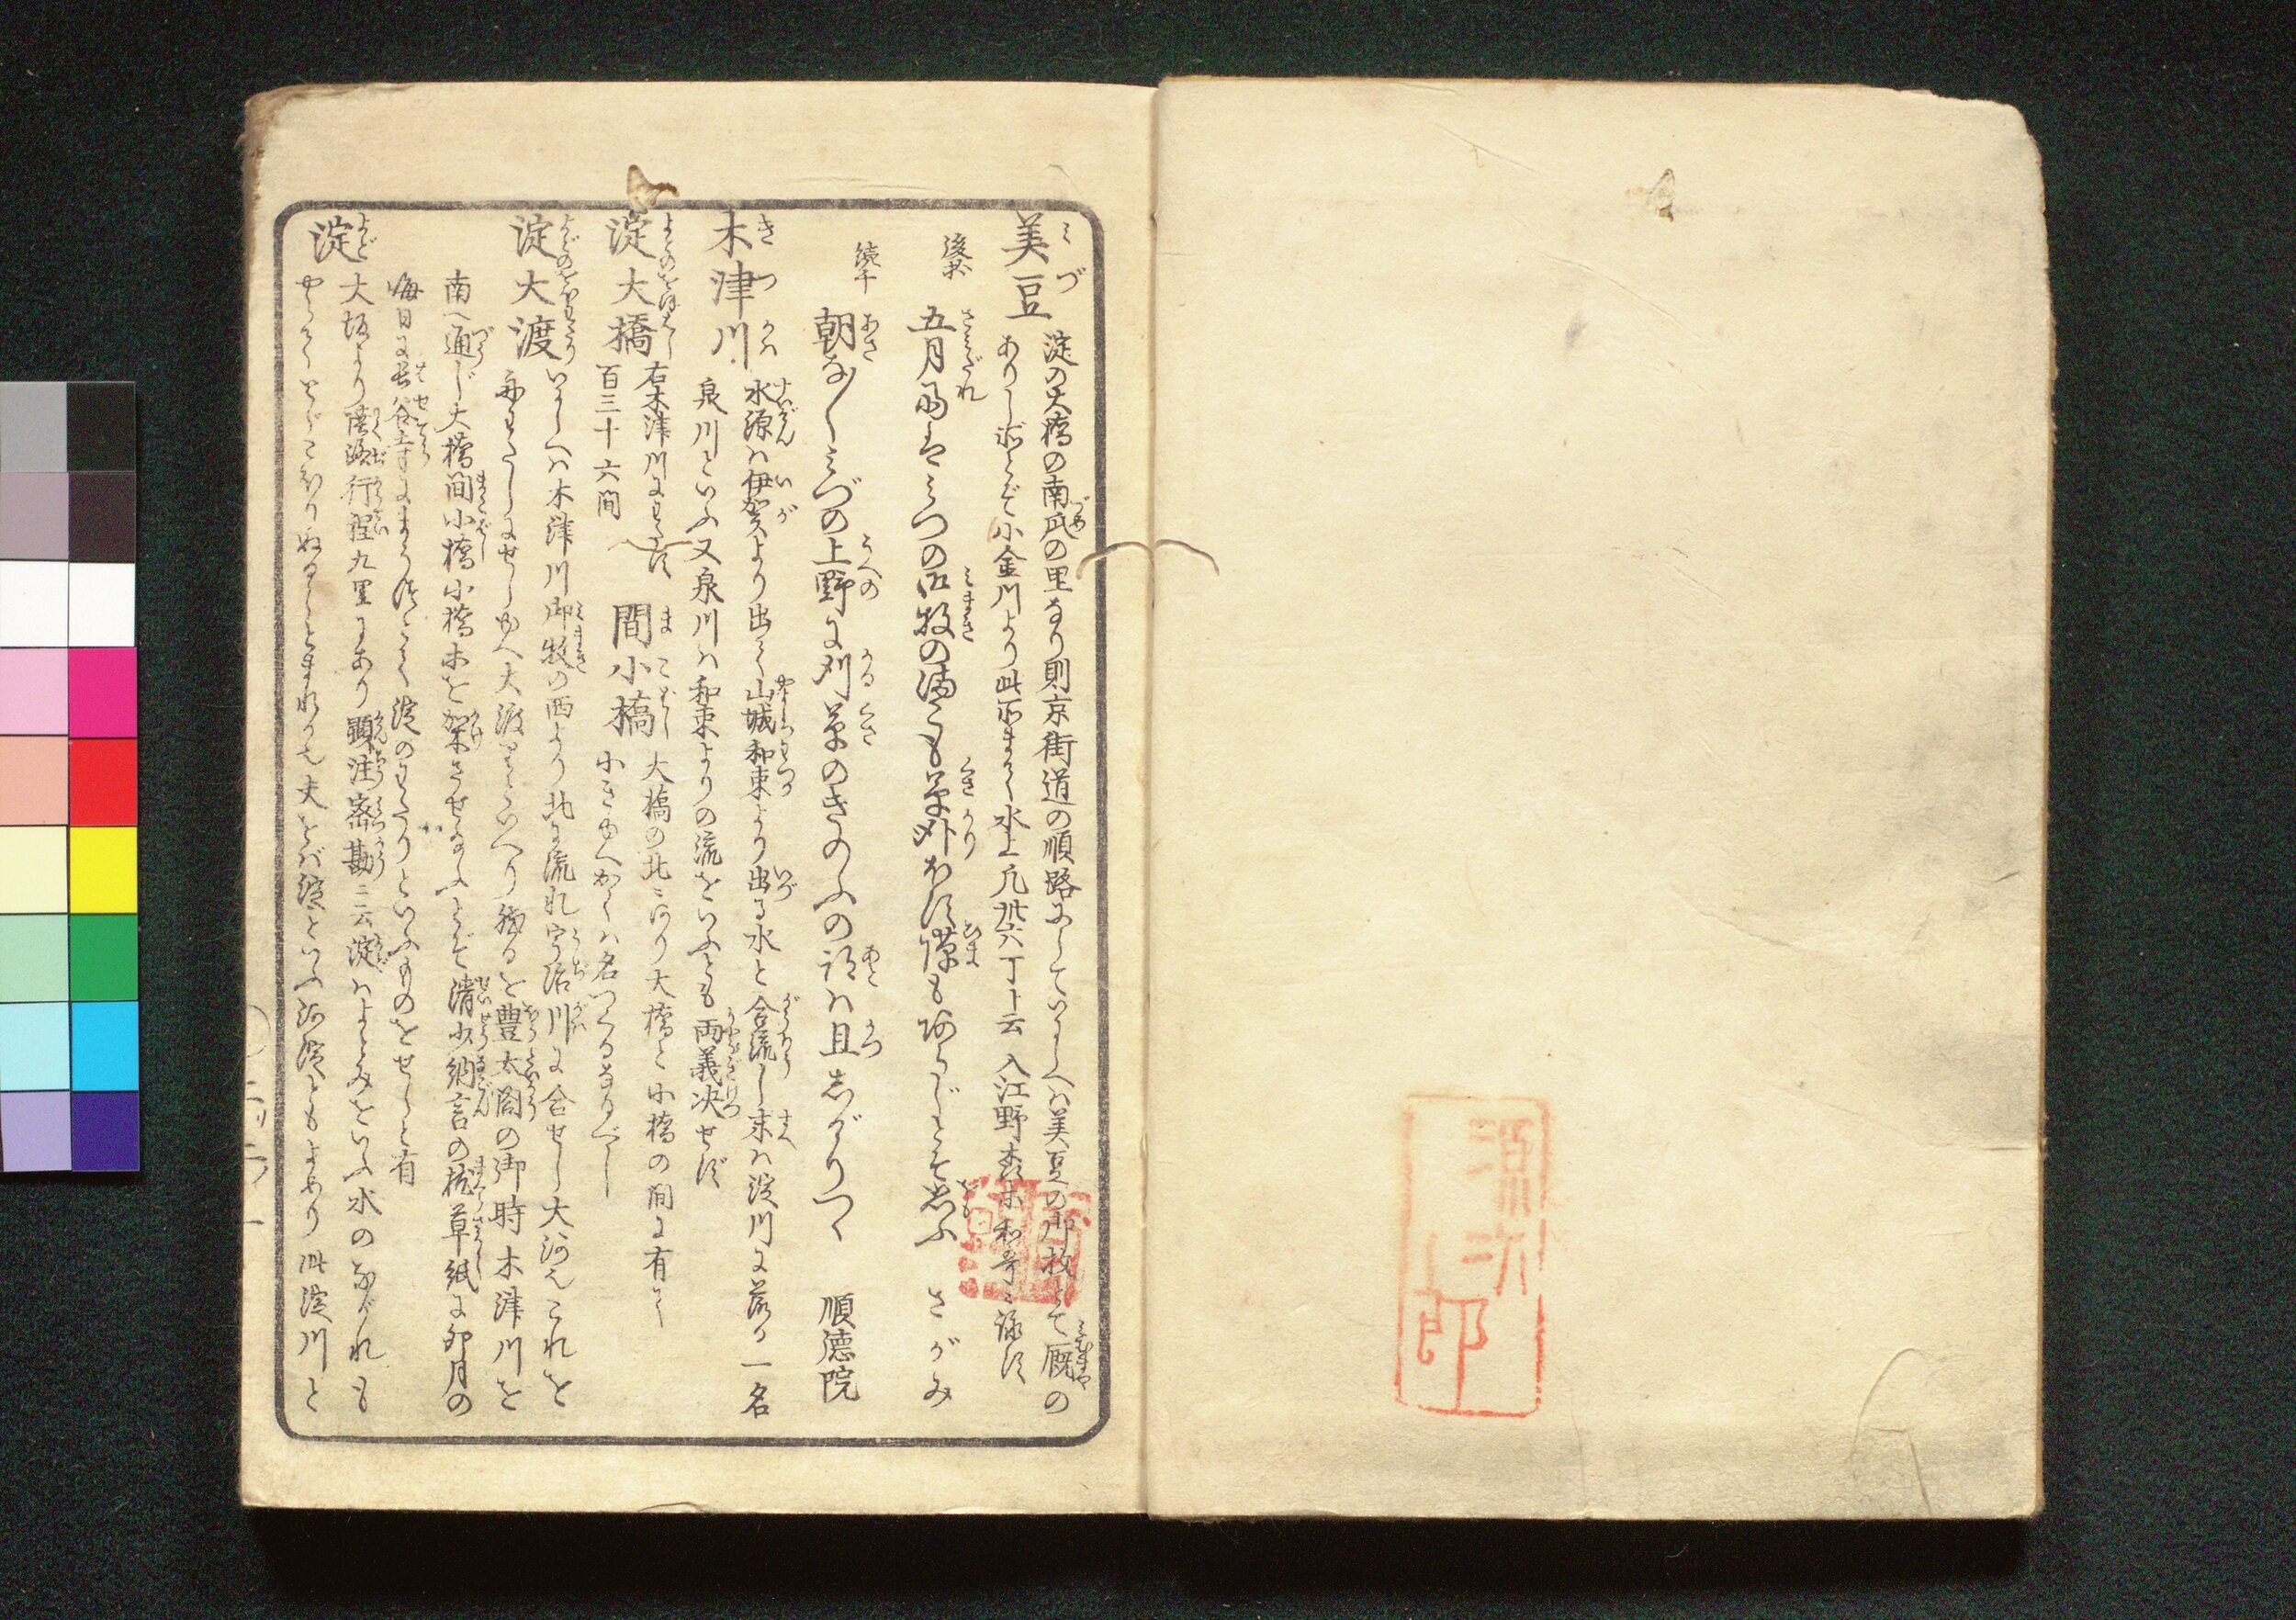 源次郎
美豆 淀の大橋の南爪の里なり則京街道の順路にしていにしへは美豆の御牧とて厩の
ありし所とぞ小金川より此所まで水上凡廿六丁ト云 入江野森等和哥ニ詠ず
後拾 五月雨はみつの御牧の満こも草刈ほす隙もあらじとぞ思ふ さがみ
続千 朝な〳〵みづの上野に刈草のきのふの跡は且しげりつゝ 順徳院
木津川 水源は伊賀より出て山城和束より出る水と合流し末は淀川に落る一名
泉川といふ又泉川は和束よりの流をいふとも両義決せず
淀大橋 右木津川にわたす
百三十六間
間小橋 大橋の北ニあり大橋と小橋の間に有て
小きゆへかくは名つくるなるべし
淀大渡 いにしへは木津川御牧の西より北に流れ宇治川に合せし大河也これを
舟わたしにせしゆへ大渡りといへり然るを豊太閤の御時木津川を
南へ通じ大橋間小橋小橋等を架させ給ふとぞ清少納言の枕草紙に卯月の
晦日に長谷寺にまうづとて淀のわたりといふものをせしと有
淀 大坂より陸路行程九里にあり顕注密勘ニ云淀はよどみをいふ水のながれも
やらでとゞこほりぬるくとまれる也夫をば淀といふ河淀ともよめり此淀川と